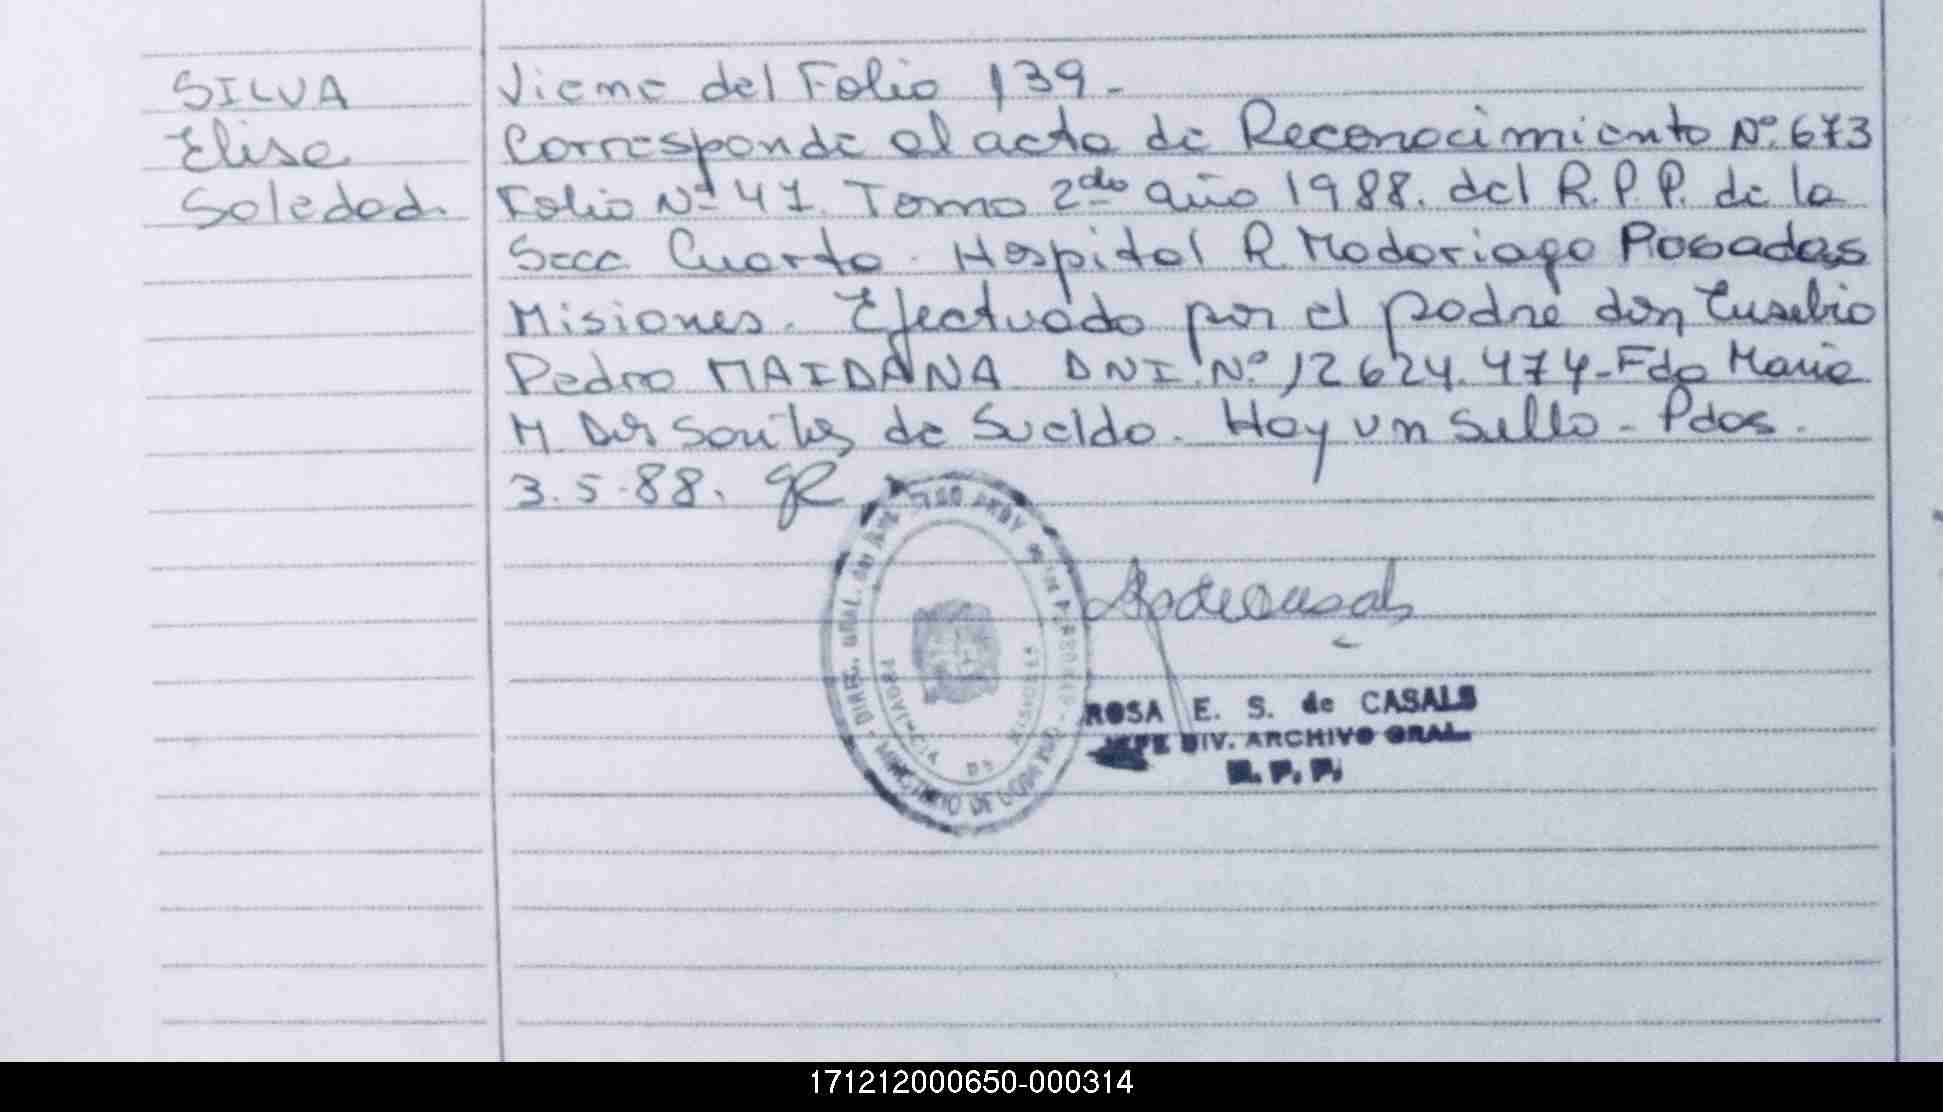 SILVA
Elisa
Soledad.
Viene del Folio 139.-
Corresponde al acta de Reconocimiento Nº 673
Folio Nº 47. Tomo 2do año 1988. del R.P.P. de la
Secc Cuarta. Hospital R Madariaga Posadas
Misiones. Efectuado por el padre don Eusebio
Pedro MAIDANA DNI. Nº 12624.474-Fdo Maria
M. de Sueldo. Hay un Sello - Pdas.
3.5.88.
DIREC. GRAL. DEL
PROVINCIA DE MISIONES
MINISTERIO DE GOBIERNO
ROSA E. S. de CASALS
JEFE DIV. ARCHIVO GRAL.
R. P. P.
171212000650-000314